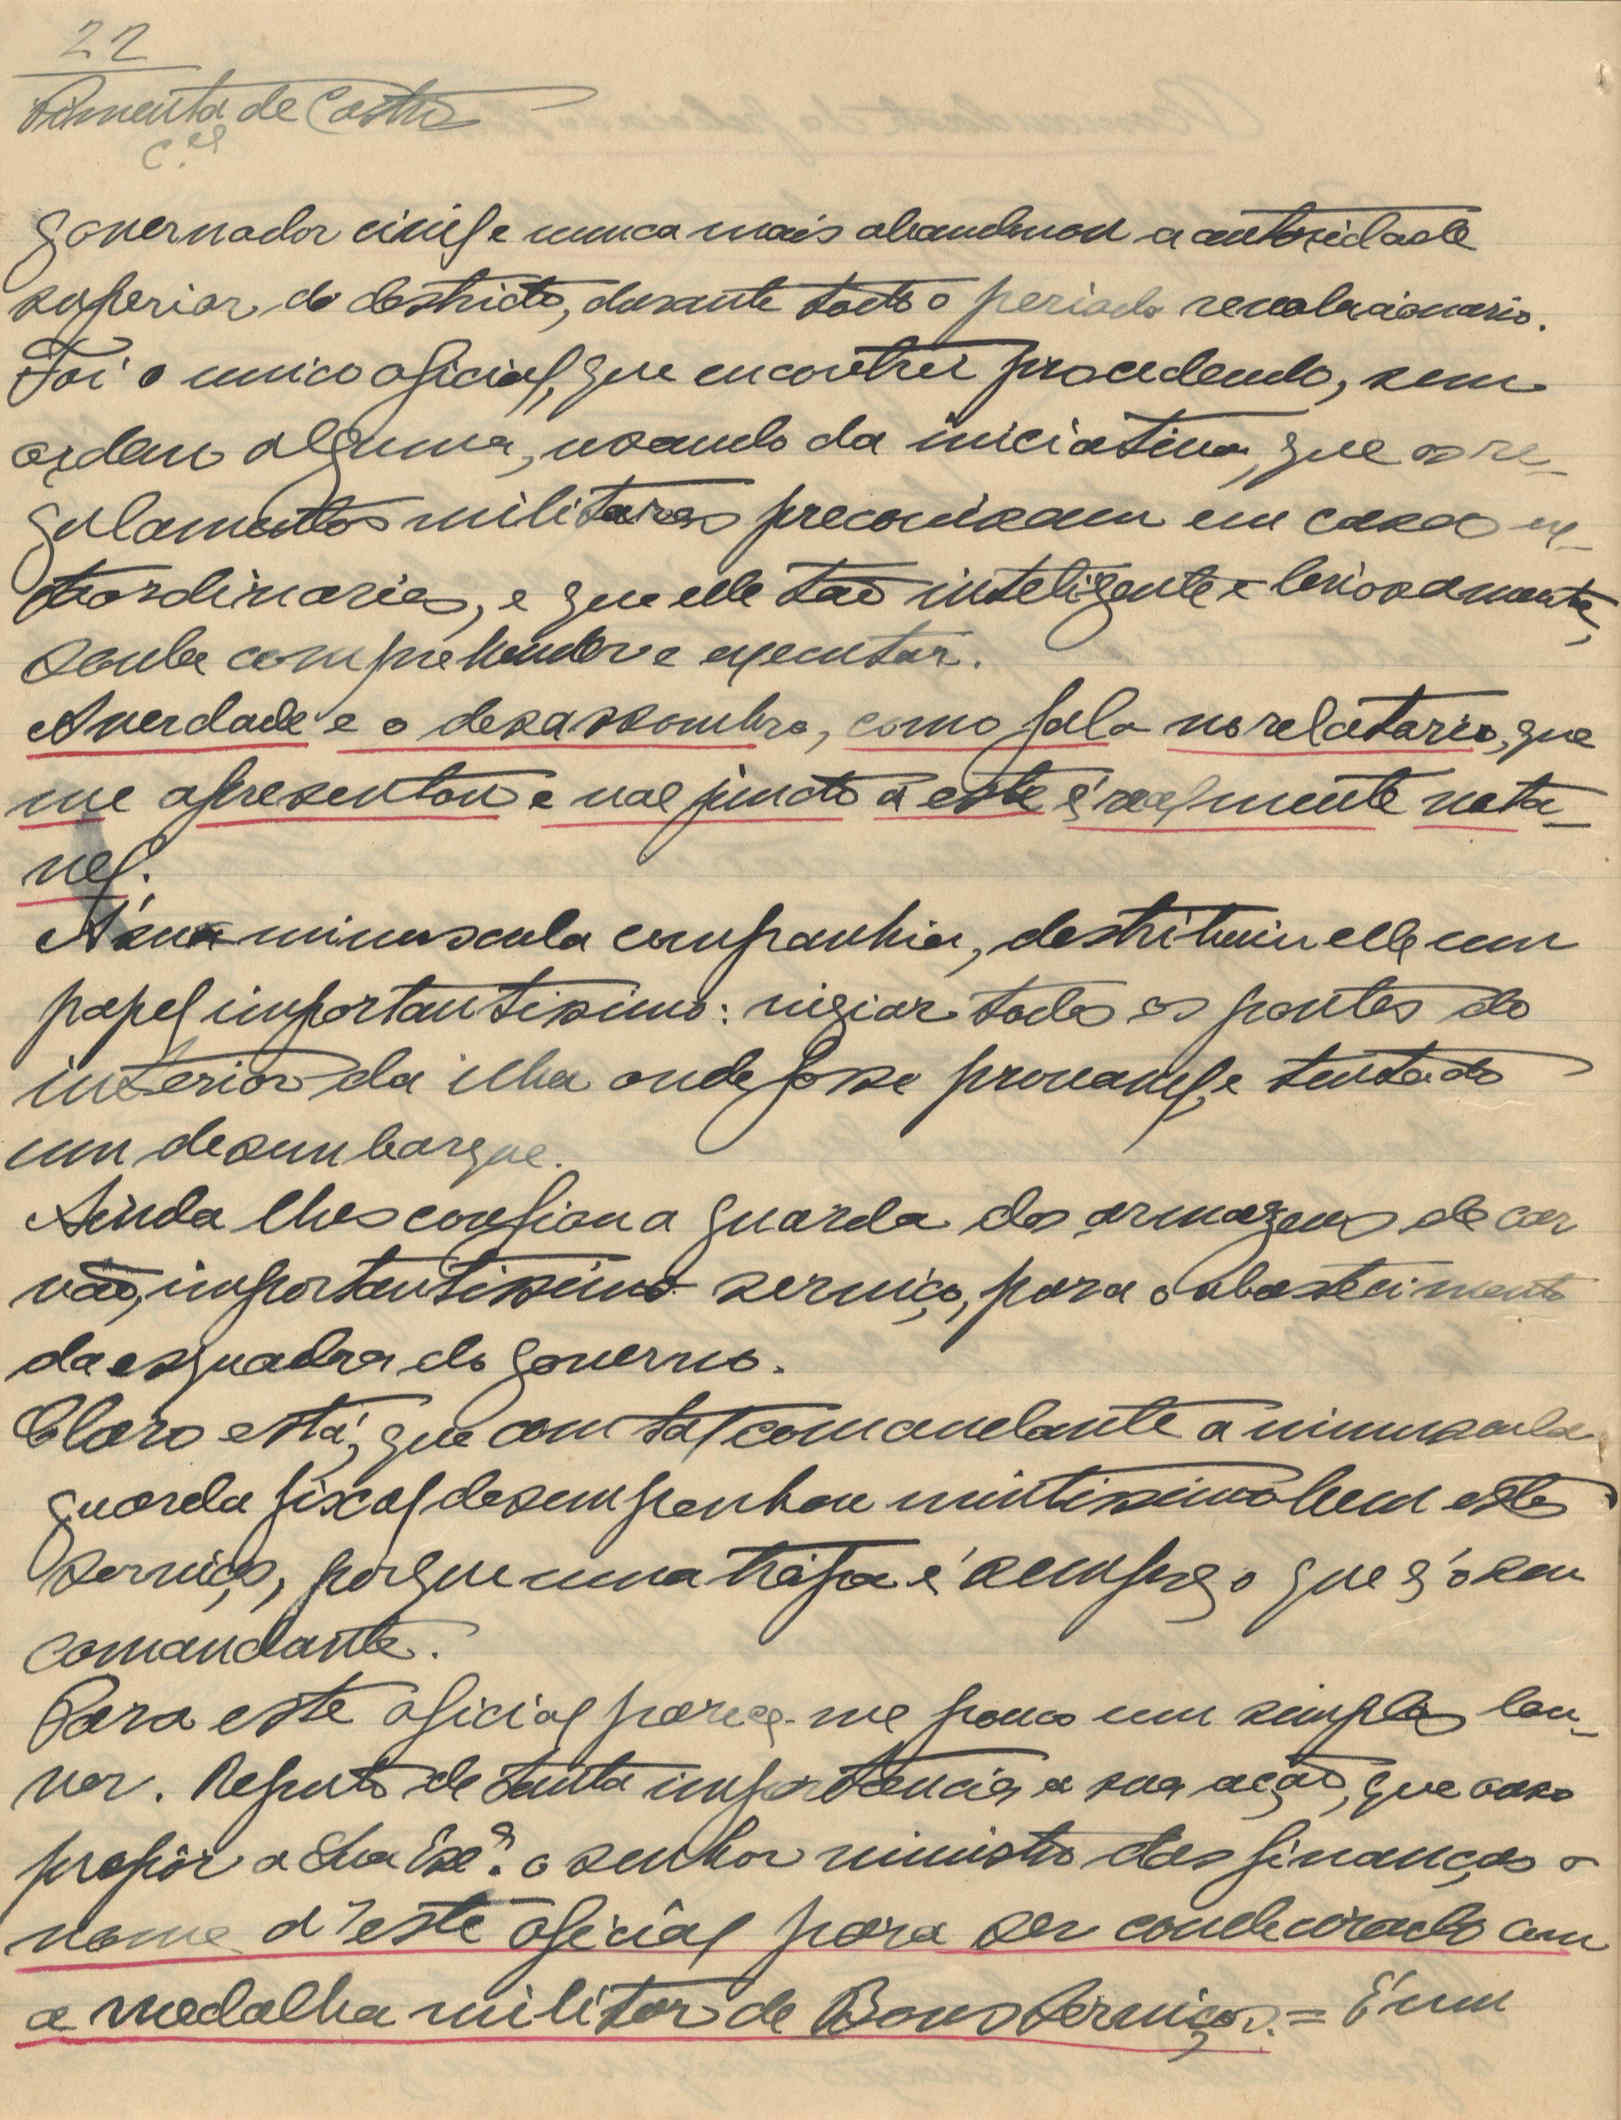 22
Pimenta de Castro
C.el
governador civil e nunca mais abandonou a autoridade
superior do destricto, durante todo o periodo revolucionario.
Foi o unico oficial, que encontrei procedendo, sem
ordem alguma, usando da iniciativa, que os re-
gulamentos militares preconisam em casos ex-
traordinarios, e que elle tão inteligente e briosamente,
soube comprehender e executar.
A verdade e o desassombro, como fala no relatorio, que
me apresentou e vae juncto a este é realmente nota-
vel.
Á sua minuscula companhia, destribuiu elle um
papel importantissimo: vigiar todos os pontos do
interior da ilha onde fosse provavel, e tentado
um desembarque.
Ainda lhes confiou a guarda dos armazens de car
vão, importantissimo serviço, para o abastecimento
da esquadra do governo.
Claro está, que com tal comandante a minuscula
guarda fiscal desempenhou muitissimo bem este
serviço, porque uma tropa é sempre o que é o seu
comandante.
Para este oficial parece-me pouco um simples lou-
vor. Reputo de tanta importancia a sua acção, que ouso
propôr a Sua Exª. o senhor ministro das finanças o
nome d'este oficial para ser condecorado com
a medalha militar de Bons Serviços. = É um